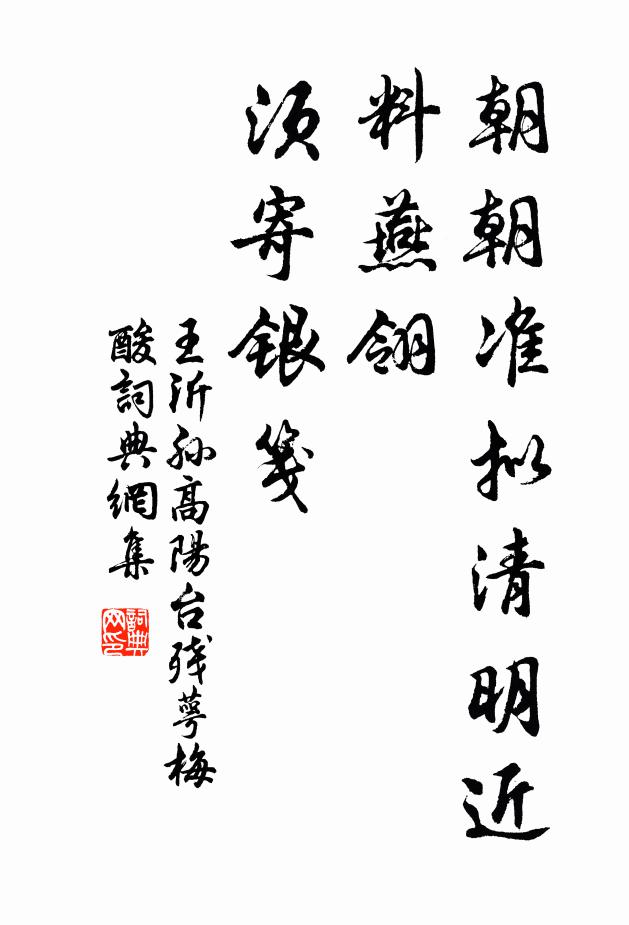 朝朝准拟清明近
料燕翎
须寄银笺
王沂孙高陽台残萼梅
酸詞典網集
詞典
网印